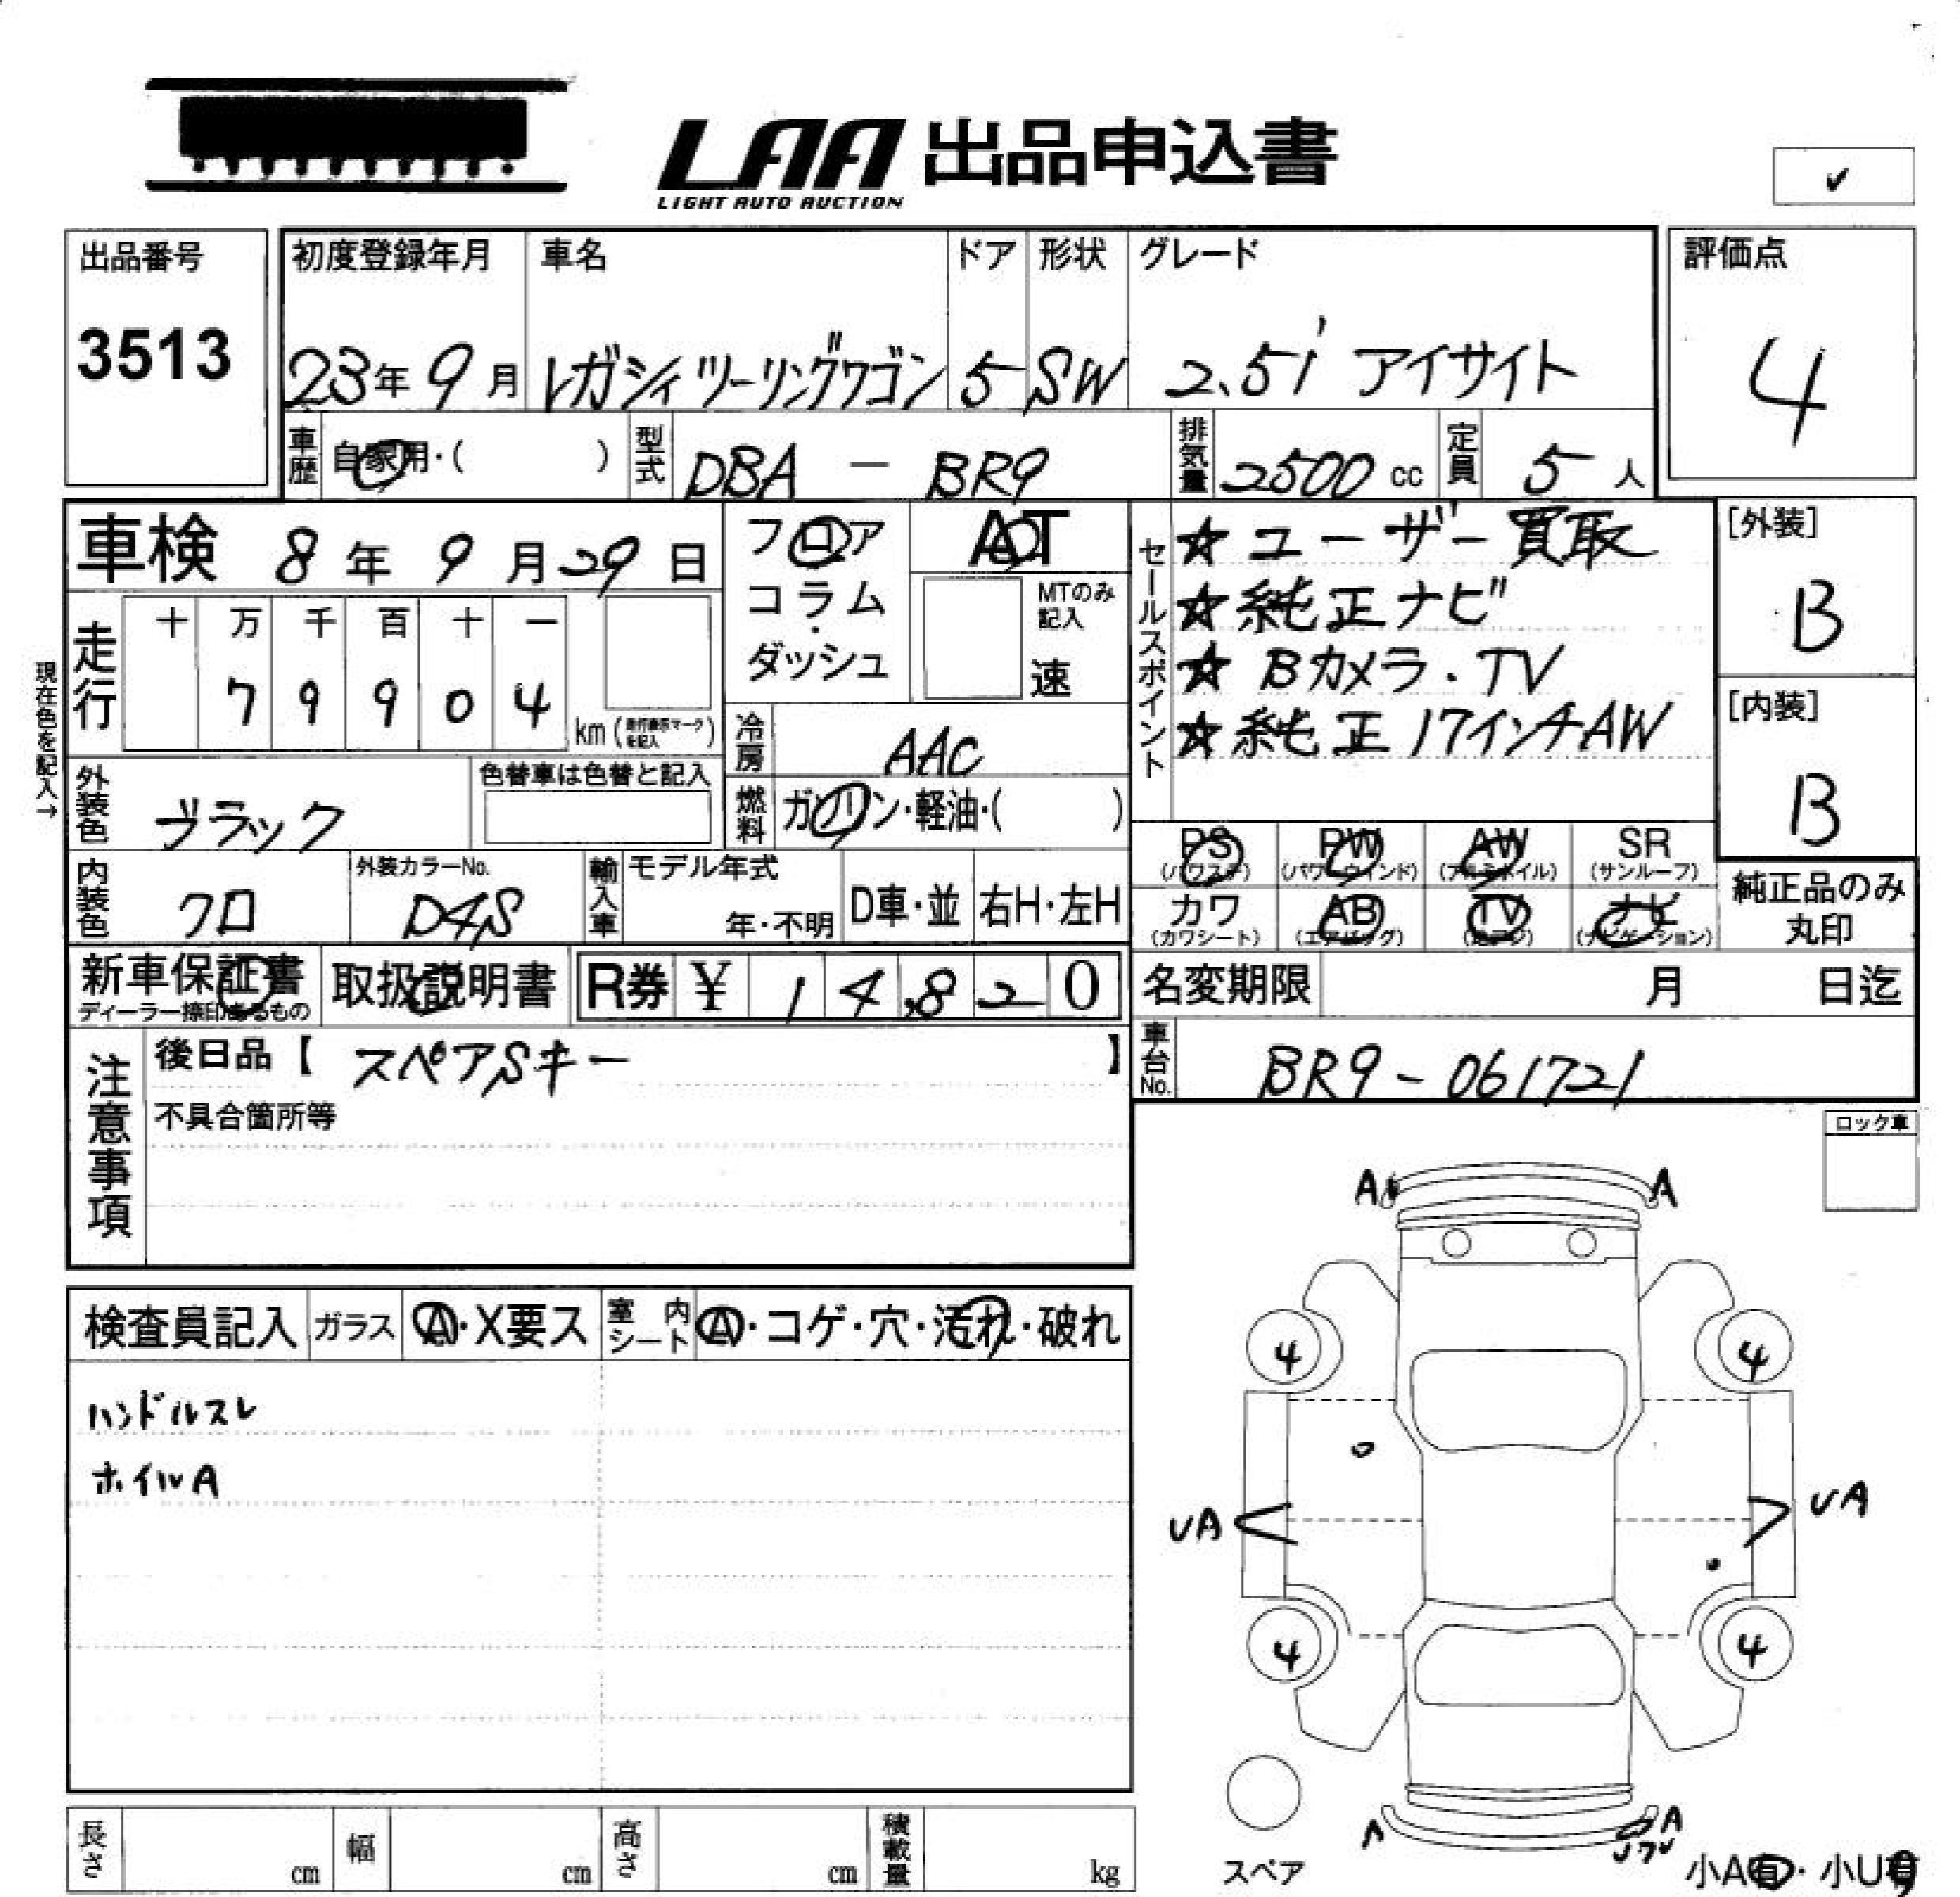 LAA 出品申込書
LIGHT AUTO AUCTION
✓
出品番号
3513
初度登録年月 車名 ドア 形状 グレード
23年9月 レガシィツーリングワゴン 5 SW 2.5i アイサイト
評価点
4
車歴 自家用・( ) 型式 DBA － BR9 排気量 2500 cc 定員 5 人
車検 8年9月29日
フロア
コラム・ダッシュ
AT
MTのみ記入
速
セールスポイント
☆ユーザー買取
☆純正ナビ
☆Bカメラ.TV
☆純正17インチAW
[外装]
B
[内装]
B
現在色を記入→
走行 十 万 千 百 十 一
7 9 9 0 4 km (走行表示マークを記入)
冷房 AAC
燃料 ガソリン・軽油・( )
外装色 ブラック
色替車は色替と記入
内装色 クロ
外装カラーNo.
D4S
輸入車 モデル年式
年・不明 D車・並 右H・左H
PS (パワステ) PW (パワーウインド) AW (アルミホイル) SR (サンルーフ)
カワ (カワシート) AB (エアバッグ) TV (テレビ) ナビ (ナビゲーション)
純正品のみ丸印
新車保証書
ディーラー捺印あるもの
取扱説明書
R券 ¥ 1 4,8 2 0
名変期限 月 日迄
車台No. BR9－061721
注意事項
後日品【 スペアSキー 】
不具合箇所等
ロック車
検査員記入 ガラス A・X要ス 室内シート A・コゲ・穴・汚れ・破れ
ハンドルスレ
ホイルA
A A
4 4
UA UA
4 4
A A
スペア
小A有・小U有
長さ cm 幅 cm 高さ cm 積載量 kg